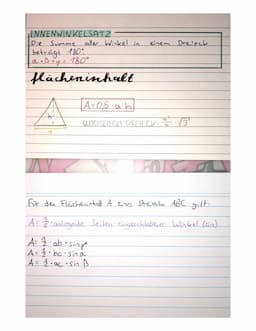 INNENWINKELSATZ
Die Summe aller Winkel in einem Dreieck
beträgt 180°.
α+β+γ = 180°
flächeninhalt
h
A=0,5·a·h
Für den Flächeninhalt A eines Dreiecks ABC gilt
A= 1/2 · anliegende Seiten eingeschlossener Winkel (sin)
A= 1/2 · ab · sin γ
A= 1/2 · bc · sin α
A= 1/2 · ac · sin β